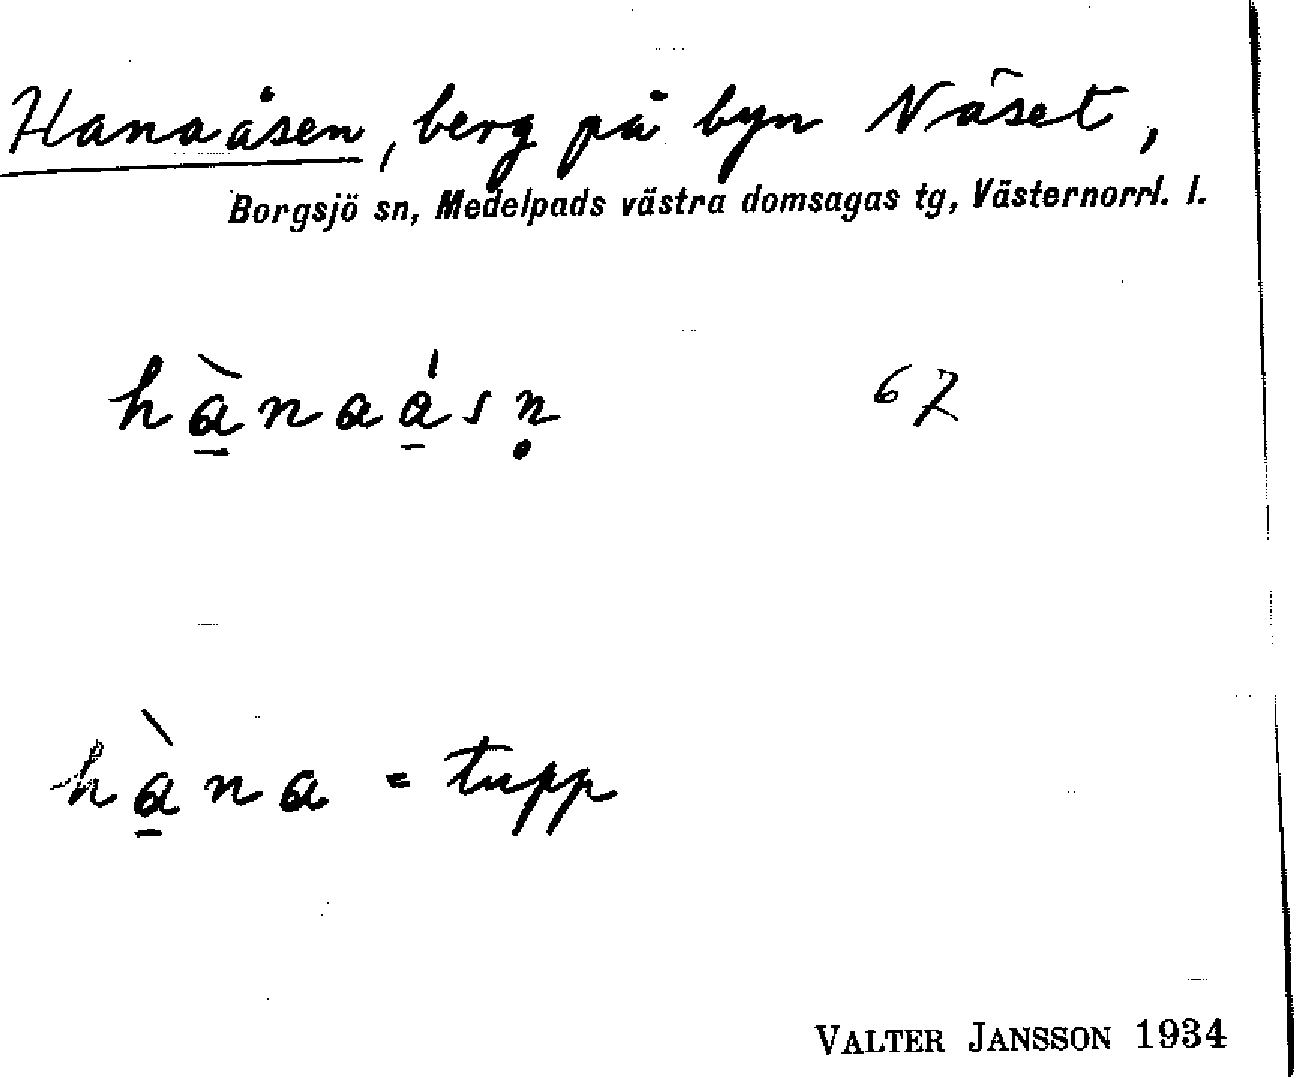 Hanaåsen, berg på byn Näset,
Borgsjö sn, Medelpads västra domsagas tg, Västernorrl. l.
hà̱naá̱sṇ 67
hà̱na = tupp
VALTER JANSSON 1934